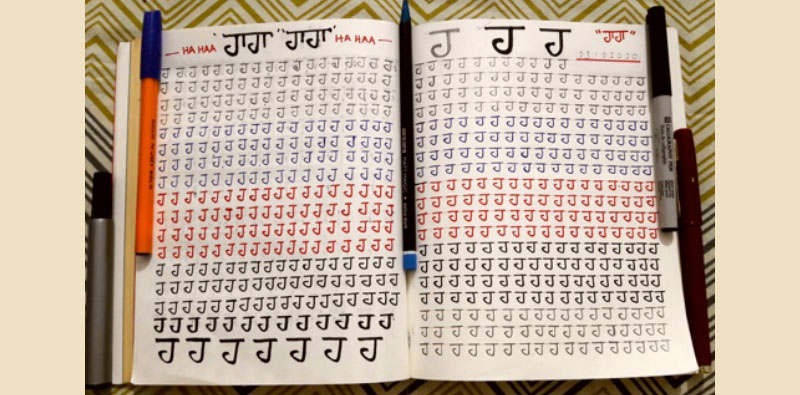 — HA HAA 'ਹਾਹਾ' "ਹਾਹਾ" HA HAA —
ਹ ਹ ਹ ਹ ਹ ਹ ਹ ਹ ਹ ਹ ਹ ਹ ਹ ਹ ਹ ਹ ਹ ਹ
ਹ ਹ ਹ ਹ ਹ ਹ ਹ ਹ ਹ ਹ ਹ ਹ ਹ ਹ ਹ ਹ ਹ ਹ
ਹ ਹ ਹ ਹ ਹ ਹ ਹ ਹ ਹ ਹ ਹ ਹ ਹ ਹ ਹ ਹ ਹ ਹ
ਹ ਹ ਹ ਹ ਹ ਹ ਹ ਹ ਹ ਹ ਹ ਹ ਹ ਹ ਹ ਹ ਹ ਹ
ਹ ਹ ਹ ਹ ਹ ਹ ਹ ਹ ਹ ਹ ਹ ਹ ਹ ਹ ਹ ਹ ਹ ਹ
ਹ ਹ ਹ ਹ ਹ ਹ ਹ ਹ ਹ ਹ ਹ ਹ ਹ ਹ ਹ ਹ ਹ ਹ
ਹ ਹ ਹ ਹ ਹ ਹ ਹ ਹ ਹ ਹ ਹ ਹ ਹ ਹ ਹ ਹ ਹ ਹ
ਹ ਹ ਹ ਹ ਹ ਹ ਹ ਹ ਹ ਹ ਹ ਹ ਹ ਹ ਹ ਹ ਹ ਹ
ਹ ਹ ਹ ਹ ਹ ਹ ਹ ਹ ਹ ਹ ਹ ਹ ਹ ਹ ਹ ਹ ਹ
ਹ ਹ ਹ ਹ ਹ ਹ ਹ ਹ ਹ ਹ ਹ ਹ ਹ ਹ ਹ ਹ ਹ
ਹ ਹ ਹ ਹ ਹ ਹ ਹ ਹ ਹ ਹ ਹ ਹ ਹ ਹ ਹ ਹ ਹ
ਹ ਹ ਹ ਹ ਹ ਹ ਹ ਹ ਹ ਹ ਹ ਹ ਹ ਹ ਹ ਹ ਹ
ਹ ਹ ਹ ਹ ਹ ਹ ਹ ਹ ਹ ਹ ਹ ਹ ਹ ਹ ਹ ਹ ਹ
ਹ ਹ ਹ ਹ ਹ ਹ ਹ ਹ ਹ ਹ ਹ ਹ ਹ ਹ ਹ ਹ ਹ
ਹ ਹ ਹ ਹ ਹ ਹ ਹ ਹ ਹ ਹ ਹ ਹ ਹ ਹ ਹ ਹ ਹ
ਹ ਹ ਹ ਹ ਹ ਹ ਹ ਹ ਹ ਹ ਹ ਹ ਹ ਹ
ਹ ਹ ਹ ਹ ਹ ਹ ਹ
ਹ ਹ ਹ "ਹਾਹਾ"
ਹ ਹ ਹ ਹ ਹ ਹ ਹ ਹ ਹ ਹ
ਹ ਹ ਹ ਹ ਹ ਹ ਹ ਹ ਹ ਹ ਹ ਹ ਹ ਹ ਹ
ਹ ਹ ਹ ਹ ਹ ਹ ਹ ਹ ਹ ਹ ਹ ਹ ਹ ਹ ਹ
ਹ ਹ ਹ ਹ ਹ ਹ ਹ ਹ ਹ ਹ ਹ ਹ ਹ ਹ ਹ
ਹ ਹ ਹ ਹ ਹ ਹ ਹ ਹ ਹ ਹ ਹ ਹ ਹ ਹ ਹ
ਹ ਹ ਹ ਹ ਹ ਹ ਹ ਹ ਹ ਹ ਹ ਹ ਹ ਹ ਹ
ਹ ਹ ਹ ਹ ਹ ਹ ਹ ਹ ਹ ਹ ਹ ਹ ਹ ਹ ਹ
ਹ ਹ ਹ ਹ ਹ ਹ ਹ ਹ ਹ ਹ ਹ ਹ ਹ ਹ ਹ
ਹ ਹ ਹ ਹ ਹ ਹ ਹ ਹ ਹ ਹ ਹ ਹ ਹ ਹ ਹ
ਹ ਹ ਹ ਹ ਹ ਹ ਹ ਹ ਹ ਹ ਹ ਹ ਹ ਹ ਹ
ਹ ਹ ਹ ਹ ਹ ਹ ਹ ਹ ਹ ਹ ਹ ਹ ਹ ਹ ਹ
ਹ ਹ ਹ ਹ ਹ ਹ ਹ ਹ ਹ ਹ ਹ ਹ ਹ ਹ ਹ
ਹ ਹ ਹ ਹ ਹ ਹ ਹ ਹ ਹ ਹ ਹ ਹ ਹ ਹ ਹ ਹ
ਹ ਹ ਹ ਹ ਹ ਹ ਹ ਹ ਹ ਹ ਹ ਹ ਹ ਹ ਹ ਹ
ਹ ਹ ਹ ਹ ਹ ਹ ਹ ਹ ਹ ਹ ਹ ਹ ਹ ਹ ਹ ਹ
ਹ ਹ ਹ ਹ ਹ ਹ ਹ ਹ ਹ ਹ ਹ ਹ ਹ ਹ ਹ ਹ
ਹ ਹ ਹ ਹ ਹ ਹ ਹ ਹ ਹ ਹ ਹ ਹ ਹ ਹ ਹ ਹ
ਹ ਹ ਹ ਹ ਹ ਹ ਹ ਹ ਹ ਹ ਹ ਹ ਹ ਹ ਹ ਹ
ਹ ਹ ਹ ਹ ਹ ਹ ਹ ਹ ਹ ਹ ਹ ਹ ਹ ਹ ਹ ਹ